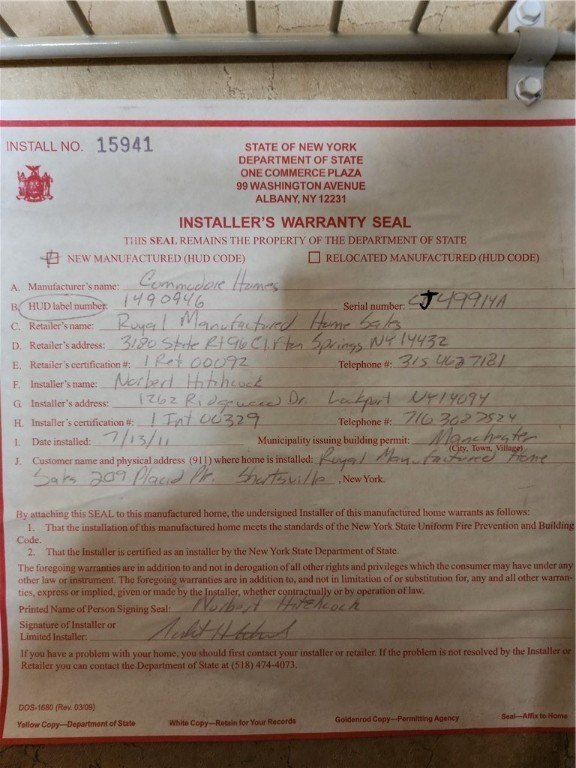 INSTALL NO. 15941
STATE OF NEW YORK
DEPARTMENT OF STATE
ONE COMMERCE PLAZA
99 WASHINGTON AVENUE
ALBANY, NY 12231
INSTALLER'S WARRANTY SEAL
THIS SEAL REMAINS THE PROPERTY OF THE DEPARTMENT OF STATE
NEW MANUFACTURED (HUD CODE) RELOCATED MANUFACTURED (HUD CODE)
A. Manufacturer's name: Commodore Homes
B. HUD label number: 1490946 Serial number: CJ49914A
C. Retailer's name: Royal Manufactured Home Sales
D. Retailer's address: 3180 State Rt 96 Clifton Springs NY 14432
E. Retailer's certification #: 1 Ret 00092 Telephone #: 315 462 7181
F. Installer's name: Norbert Hitchcock
G. Installer's address: 1262 Ridgewood Dr. Lockport NY 14094
H. Installer's certification #: 1 Int 00329 Telephone #: 716 302 7524
I. Date installed: 7/13/11 Municipality issuing building permit: Manchester
(City, Town, Village)
J. Customer name and physical address (911) where home is installed: Royal Manufactured Home
Sales 209 Placid Shortsville, New York.
By attaching this SEAL to this manufactured home, the undersigned Installer of this manufactured home warrants as follows:
1. That the installation of this manufactured home meets the standards of the New York State Uniform Fire Prevention and Building
Code.
2. That the Installer is certified as an installer by the New York State Department of State.
The foregoing warranties are in addition to and not in derogation of all other rights and privileges which the consumer may have under any
other law or instrument. The foregoing warranties are in addition to, and not in limitation of or substitution for, any and all other warran-
ties, express or implied, given or made by the Installer, whether contractually or by operation of law.
Printed Name of Person Signing Seal: Norbert Hitchcock
Signature of Installer or
Limited Installer:
If you have a problem with your home, you should first contact your installer or retailer. If the problem is not resolved by the Installer or
Retailer you can contact the Department of State at (518) 474-4073.
DOS-1680 (Rev. 03/09)
Yellow Copy—Department of State White Copy—Retain for Your Records Goldenrod Copy—Permitting Agency Seal—Affix to Home